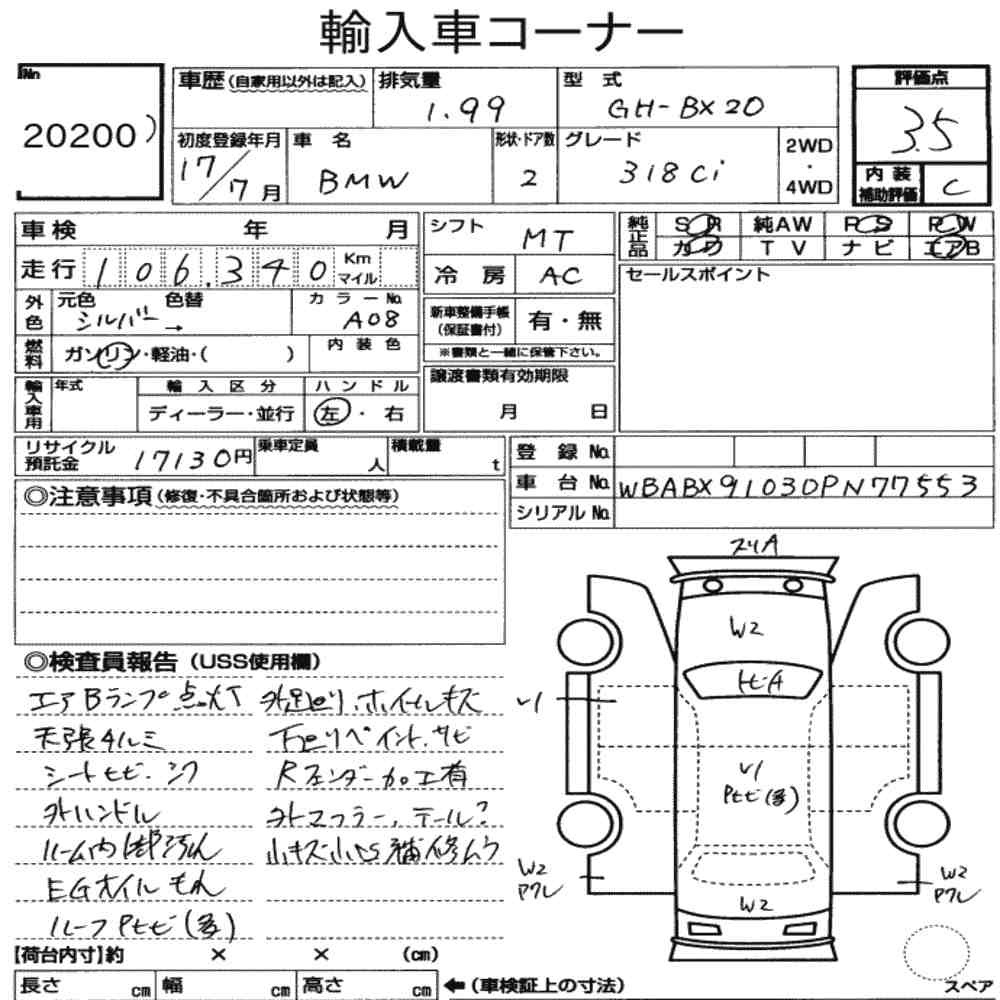 輸入車コーナー
No
20200
車歴(自家用以外は記入) 排気量 型式 評価点
1.99 GH-BX20 3.5
初度登録年月 車名 形状・ドア数 グレード 2WD・4WD
17/7月 BMW 2 318Ci
内装補助評価 C
車検 年 月 シフト MT 純正品 SR 純AW PS PW
カワ TV ナビ エアB
走行 106,340 Km マイル 冷房 AC セールスポイント
外色 元色 シルバー → 色替 カラーNo. A08 新車整備手帳(保証書付) 有・無
※書類と一緒に保管下さい。
燃料 ガソリン・軽油・( ) 内装色
輸入車用 年式 輸入区分 ハンドル 譲渡書類有効期限
ディーラー・並行 左・右 月 日
リサイクル預託金 17130円 乗車定員 人 積載量 t 登録No.
車台No. WBABX91030PN77553
シリアルNo.
◎注意事項(修復・不具合箇所および状態等)
◎検査員報告(USS使用欄)
エアBランプ点灯 外足回り、ホイールキズ
天張タルミ 下回りペイント、サビ
シートヒビ、シワ Rフェンダー加工有
外ハンドル 外マフラー、テール?
ルーム内
EGオイルもれ
ルーフPヒビ(多)
スリA
W2
ヒビA
V1
V1
Pヒビ(多)
W2
Pワレ
W2
W2
Pワレ
スペア
【荷台内寸】約 × × (cm)
長さ cm 幅 cm 高さ cm ←(車検証上の寸法)